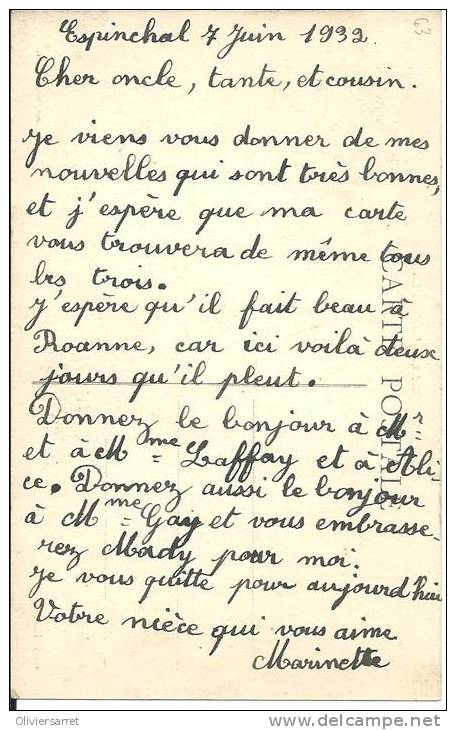 63
Espinchal 7 Juin 1932.
Cher oncle, tante, et cousin.
Je viens vous donner de mes
nouvelles qui sont très bonnes,
et j'espère que ma carte
vous trouvera de même tous
les trois.
J'espère qu'il fait beau à
Roanne, car ici voilà deux
jours qu'il pleut.
Donnez le bonjour à Mr
et à Mme Laffay et à Ali-
ce. Donnez aussi le bonjour
à Mme Gay et vous embrasse-
rez Mady pour moi.
Je vous quitte pour aujourd'hui
Votre nièce qui vous aime
Marinette
CARTE POSTALE
Oliviersarret
www.delcampe.net